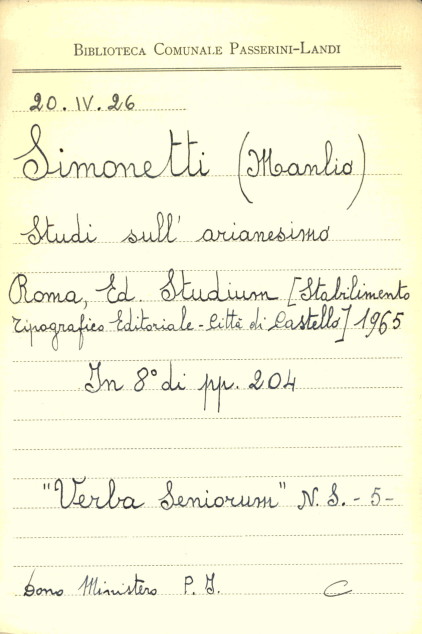 BIBLIOTECA COMUNALE PASSERINI-LANDI
20. IV. 26
Simonetti (Manlio)
Studi sull' arianesimo
Roma, Ed. Studium [Stabilimento
Tipografico Editoriale - Città di Castello] 1965
In 8° di pp. 204
"Verba Seniorum" N. S. - 5 -
Dono Ministero P. I.
C